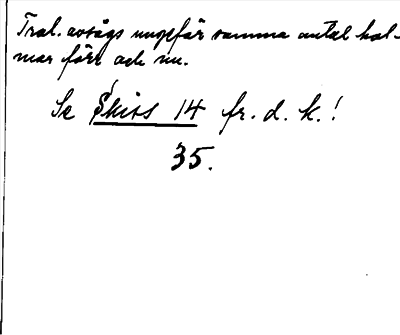 Trol. avsågs ungefär samma antal hal-
mar förr och nu.
Se Skiss 14 fr. d. k.!
35.